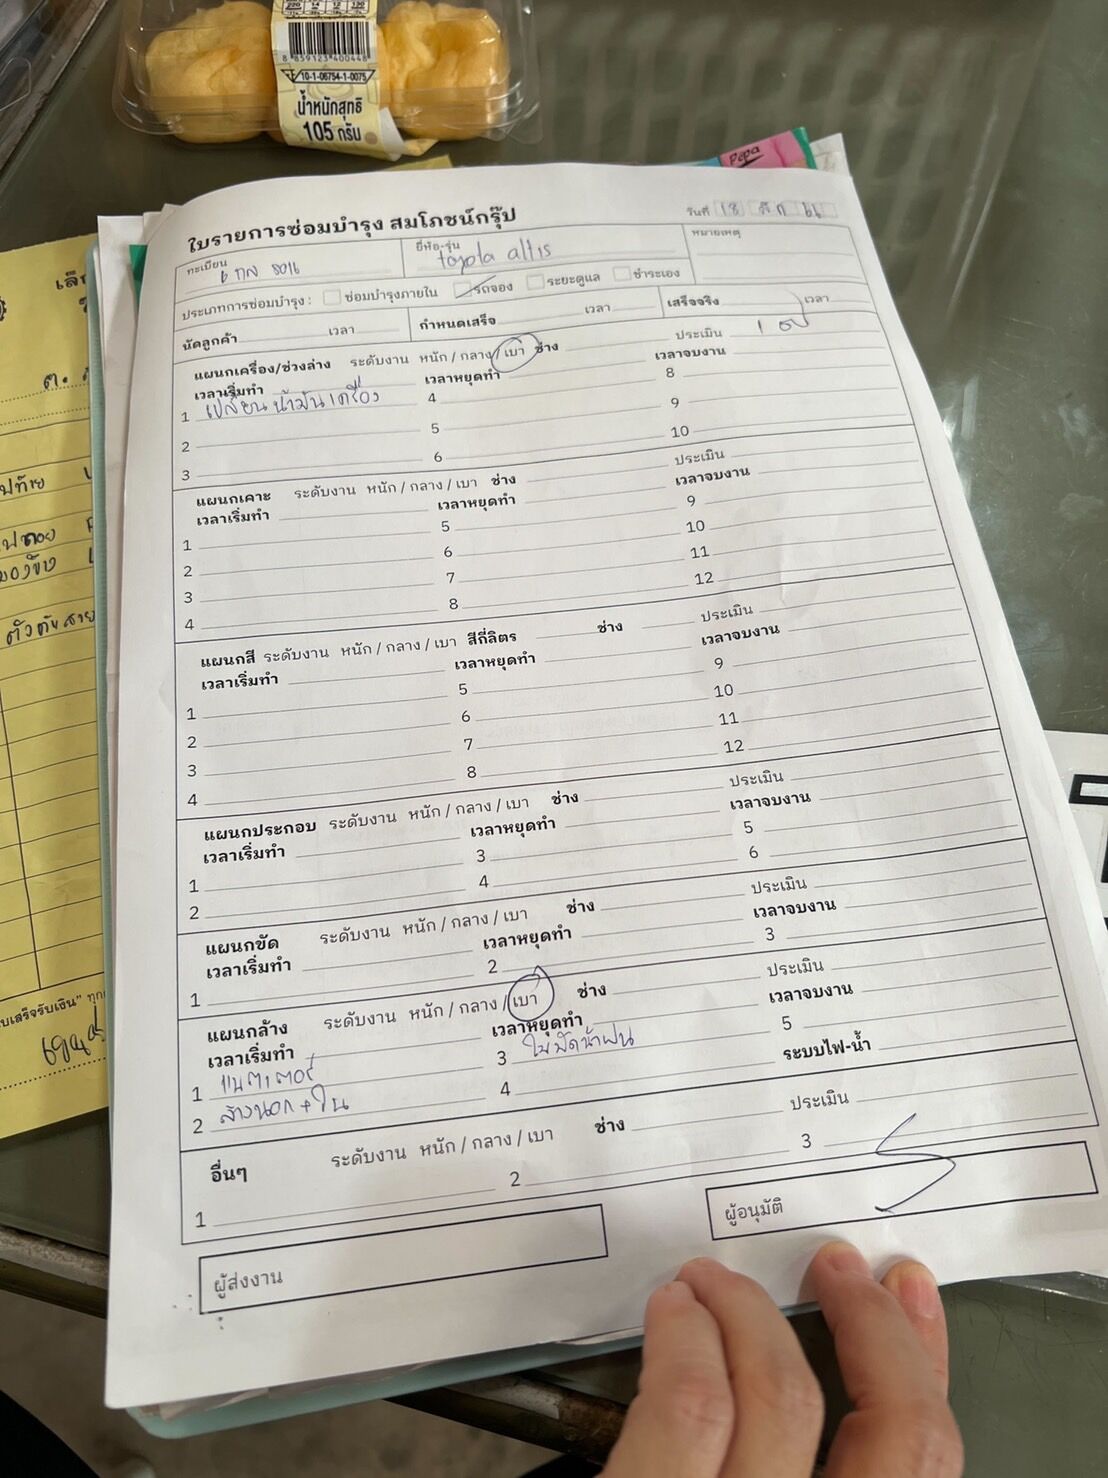 8 859123 400448
10-1-06754-1-0075
น้ำหนักสุทธิ
105 กรัม
Pepa
ใบรายการซ่อมบำรุง สมโภชน์กรุ๊ป
วันที่ 18
ทะเบียน 6 กล 8016
ยี่ห้อ-รุ่น toyota altis
หมายเหตุ
ประเภทการซ่อมบำรุง : ซ่อมบำรุงภายใน รถจอง ระยะดูแล ชำระเอง
นัดลูกค้า เวลา กำหนดเสร็จ เวลา เสร็จจริง เวลา
แผนกเครื่อง/ช่วงล่าง ระดับงาน หนัก / กลาง / เบา ช่าง ประเมิน 1
เวลาเริ่มทำ เวลาหยุดทำ เวลาจบงาน
1 เปลี่ยนน้ำมันเครื่อง 4 8
2 5 9
3 6 10
แผนกเคาะ ระดับงาน หนัก / กลาง / เบา ช่าง ประเมิน
เวลาเริ่มทำ เวลาหยุดทำ เวลาจบงาน
1 5 9
2 6 10
3 7 11
4 8 12
แผนกสี ระดับงาน หนัก / กลาง / เบา สีกี่ลิตร ช่าง ประเมิน
เวลาเริ่มทำ เวลาหยุดทำ เวลาจบงาน
1 5 9
2 6 10
3 7 11
4 8 12
แผนกประกอบ ระดับงาน หนัก / กลาง / เบา ช่าง ประเมิน
เวลาเริ่มทำ เวลาหยุดทำ เวลาจบงาน
1 3 5
2 4 6
แผนกขัด ระดับงาน หนัก / กลาง / เบา ช่าง ประเมิน
เวลาเริ่มทำ เวลาหยุดทำ เวลาจบงาน
1 2 3
แผนกล้าง ระดับงาน หนัก / กลาง / เบา ช่าง ประเมิน
เวลาเริ่มทำ เวลาหยุดทำ เวลาจบงาน
1 แบตเตอรี่ 3 ใบปัดน้ำฝน 5
2 ล้างนอก + ใน 4 ระบบไฟ-น้ำ
อื่นๆ ระดับงาน หนัก / กลาง / เบา ช่าง ประเมิน
1 2 3
ผู้ส่งงาน
ผู้อนุมัติ